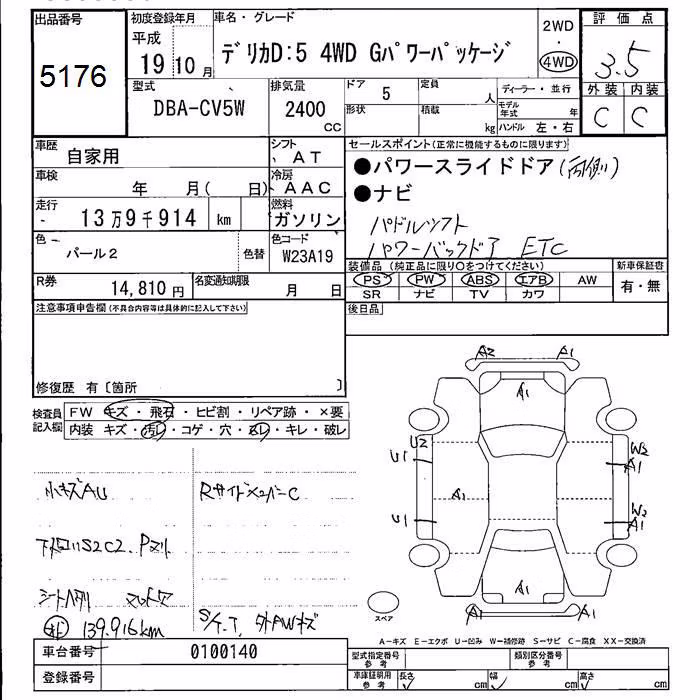 出品番号
5176
初度登録年月
平成
19 10 月
車名・グレード
デリカD:5 4WD Gパワーパッケージ
2WD
・
4WD
評価点
3.5
外装 内装
C C
型式
DBA-CV5W
排気量
2400
CC
ドア
5
定員
人
形状
積載
kg
ディーラー・並行
モデル年式
年
ハンドル 左・右
車歴
自家用
シフト
AT
車検
年 月( 日)
冷房
AAC
走行
13万9千914 km
燃料
ガソリン
色
パール2
色替
色コード
W23A19
R券
14,810 円
名変通知期限
月 日
セールスポイント(正常に機能するものに限ります)
●パワースライドドア(両側)
●ナビ
パドルシフト
パワーバックドア ETC
装備品 (純正品に限り○をつけてください)
PS PW ABS エアB AW
SR ナビ TV カワ
新車保証書
有・無
後日品
注意事項申告欄(不具合内容等は具体的に記入して下さい)
修復歴 有〔箇所 〕
検査員
記入欄
FW キズ・飛石・ヒビ割・リペア跡・×要
内装 キズ・汚レ・コゲ・穴・スレ・キレ・破レ
小キズAU
RサイドメンバーC
シートヘタリ
139.916km
A2 A1
A1
U2
U1
W2
A1
A1
U1
W2
A1
A1
A1 A1
スペア
A-キズ E-エクボ U-凹み W-補修跡 S-サビ C-腐食 XX-交換済
車台番号
0100140
登録番号
型式指定番号
参考
類別区分番号
参考
車庫証明用
参考
長さ
cm
幅
cm
高さ
cm